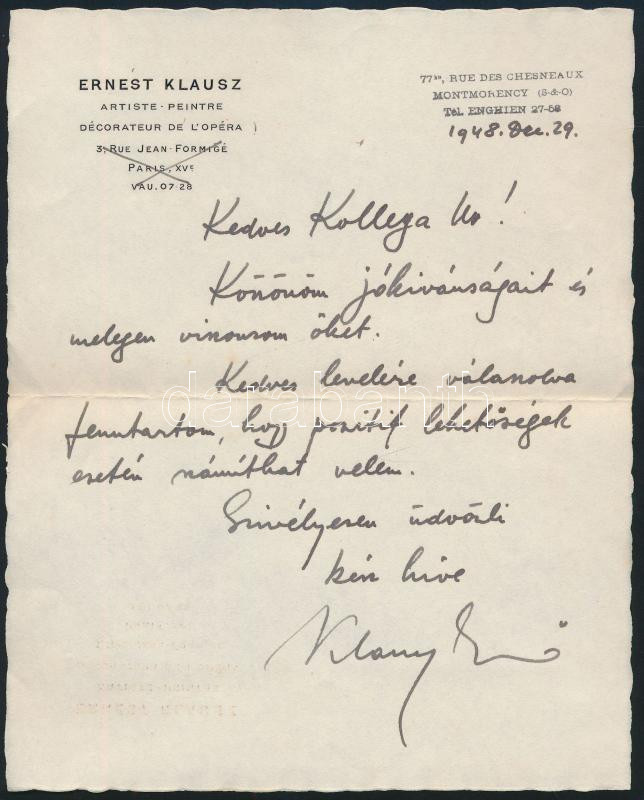 ERNEST KLAUSZ
ARTISTE - PEINTRE
DÉCORATEUR DE L'OPÉRA
3, RUE JEAN-FORMIGÉ
PARIS, XVe
VAU. 07-28
77bis, RUE DES CHESNEAUX
MONTMORENCY (S-&-O)
Tél. ENGHIEN 27-58
1948. Dec. 29.
Kedves Kollega Ur!
Köszönöm jókivánságait és
melegen viszonzom őket.
Kedves levelére válaszolva
fenntartom, hogy pozitif lehetőségek
esetén számíthat velem.
Szivélyesen üdvözli
kész hive
Klausz Ernő
darabanth